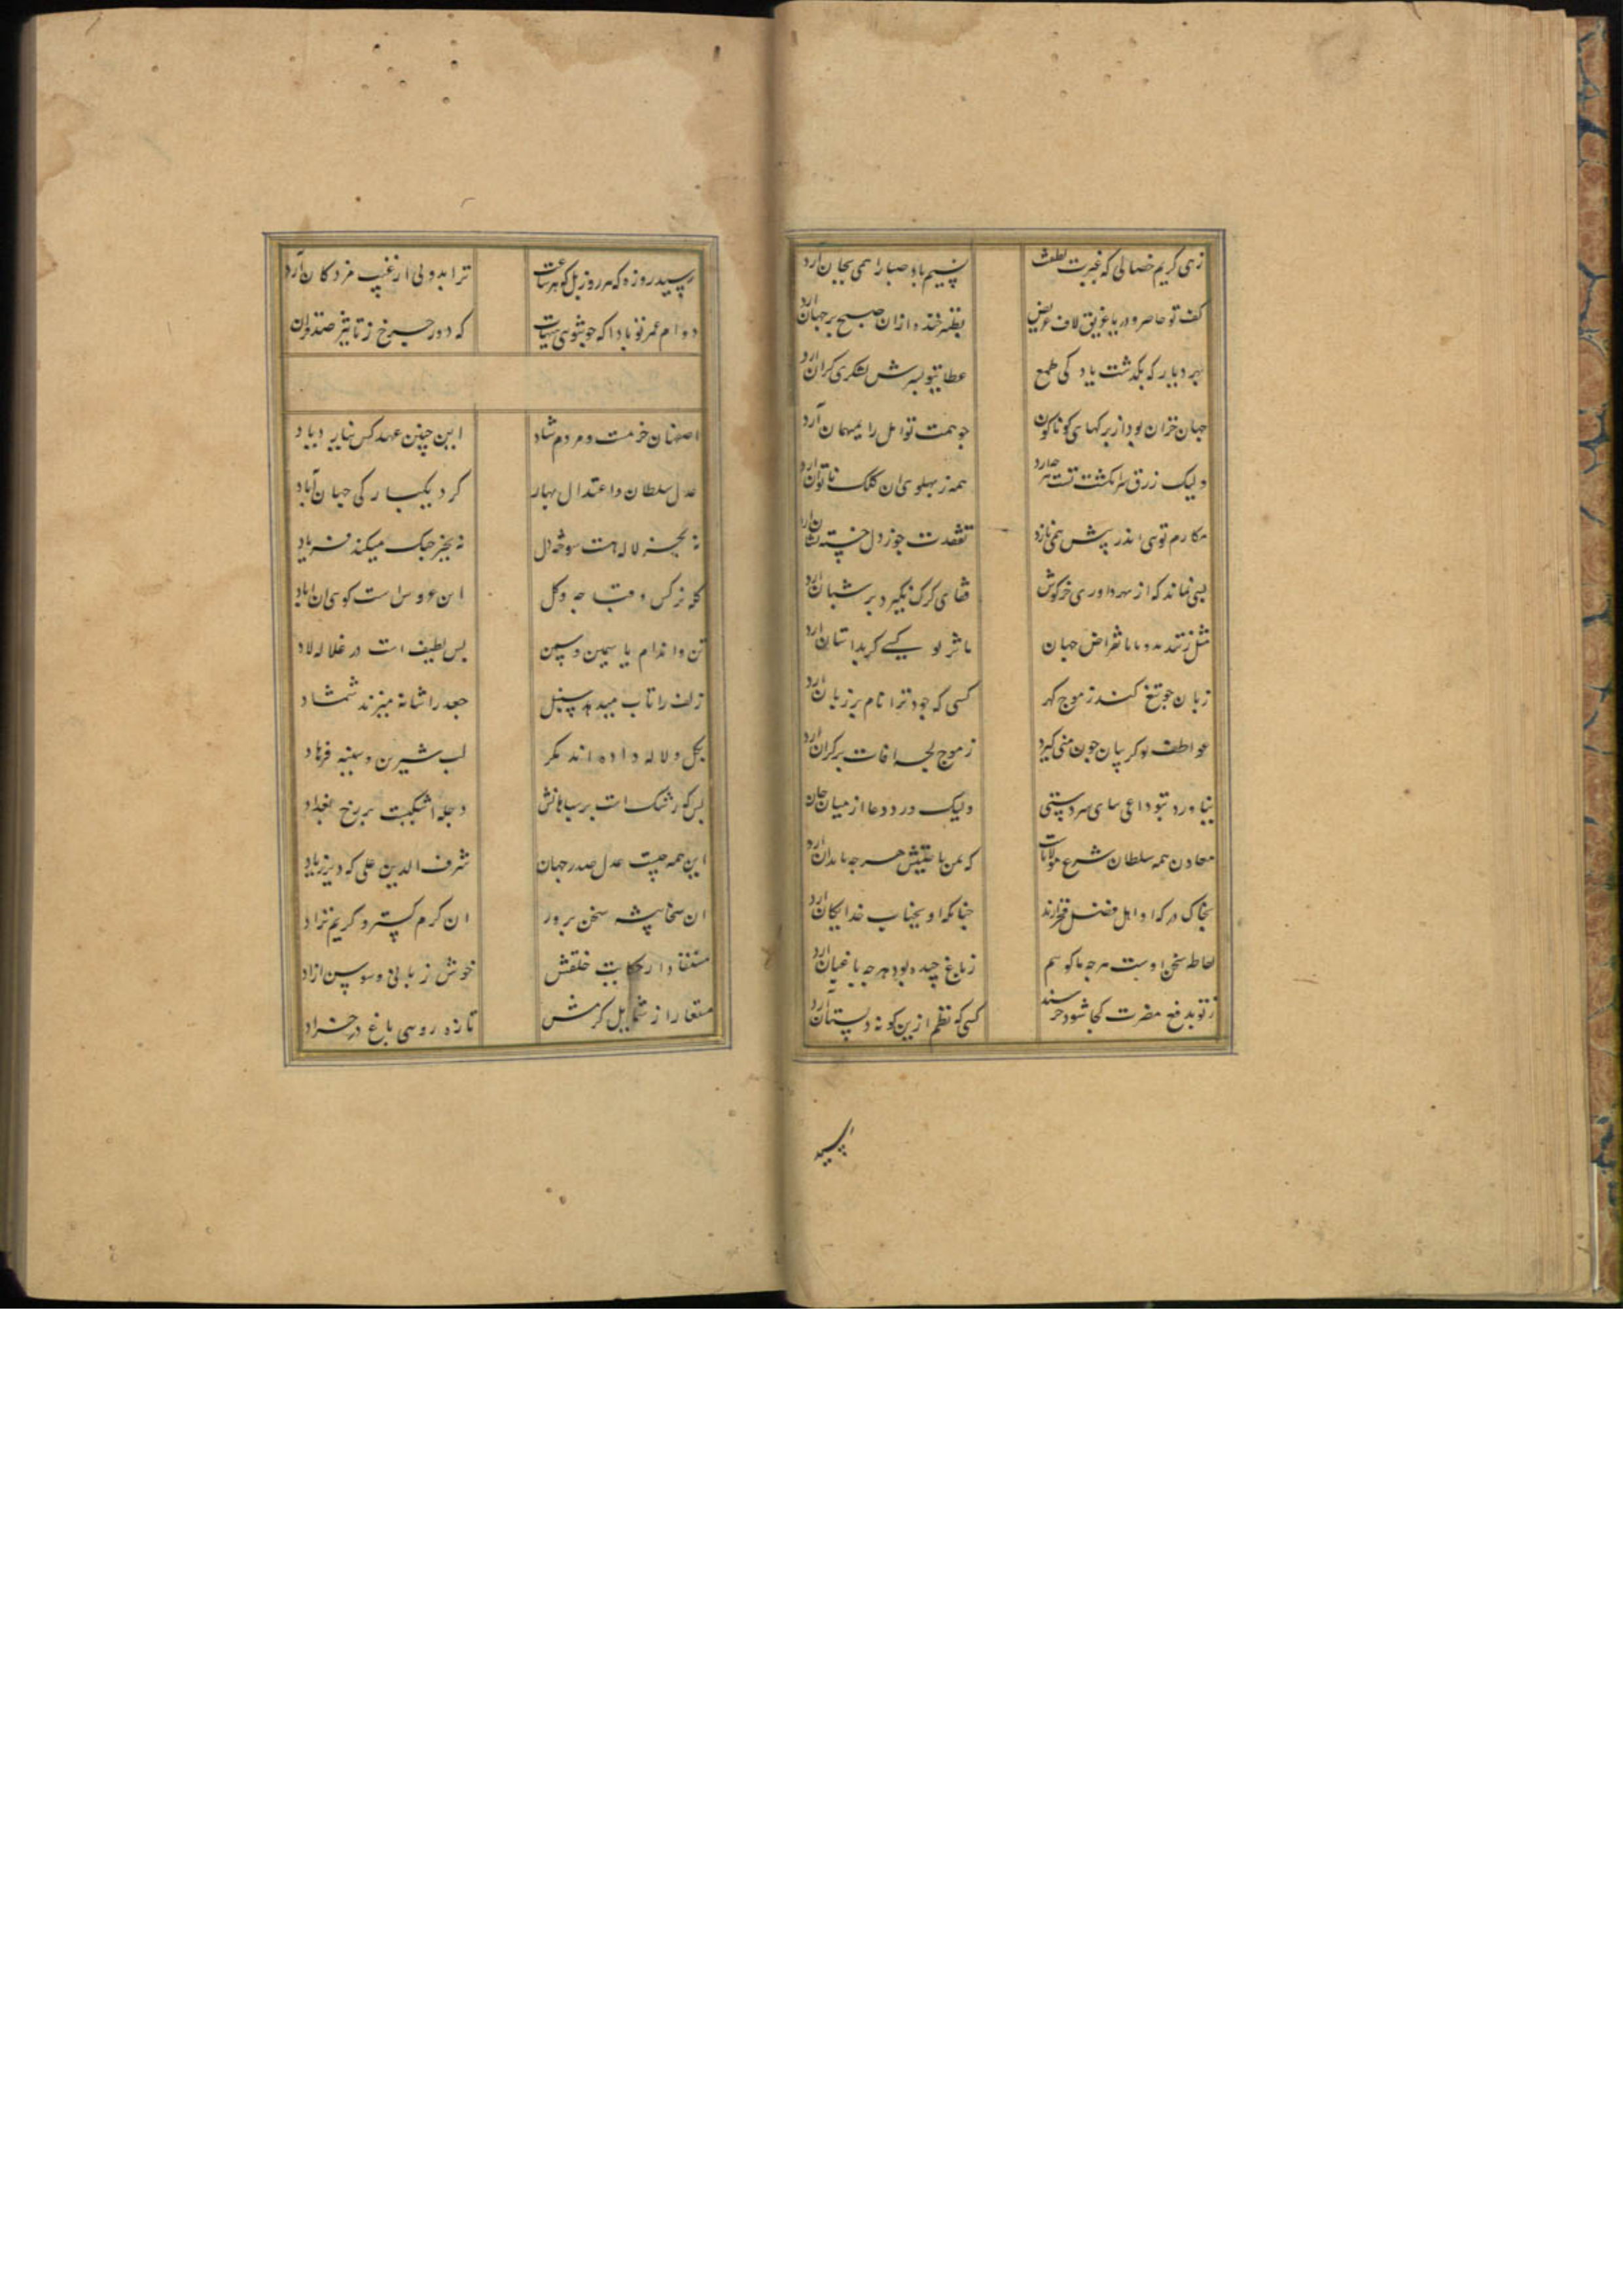 زهی کریم خصالی که غیرت لطفت نسیم باد صبا را همی بجان آرد
کف تو حاضر و دریا غریق لاف عریض بطنز خنده ازان صبح بر جهان آرد
بهر دیار که بگذشت یاد کی طمع عطا بتو بسرش لشکری گران آرد
جهان خزان بود از برکهای کوناکون جو همت تو امل را بمیهمان آرد
ولیک زرق سر انگشت تست هر جه ارد همه ز بهلوی ان کلک ناتوان ارد
مکارم توی پذیرش همی نازد تفقدت جو ز دل خسته نشان ارد
بسی نماند که از بهر داوری خرکوش قفای کرک بگیرد بر شبان ارد
مثل زنند بانقراض جهان ماثر تو کسی کر بداستان ارد
زبان جو تیغ کند ز موج کهر کسی که جود ترا نام بر زبان ارد
عواطف تو کریبان جون منی کیرد ز موج لجه افات بر کران ارد
نیاورد بتو داعی سای سردستی ولیک درد دعا از میان جان
معادن همه سلطان شرع مولانات که یمن باعتیش هر جه مدان ارد
بخاک درکه او اهل فضل فخر ارند جنانکه او بجناب خدایکان ارد
احاطه سخن اوست هر جه ماکوسم ز باغ جیده بود هر جه باغبان ارد
ز تو بدفع مضرت کجا شود خرسند کسی که نظم ازین کونه دلستان آرد
رسید روزه که هر روز بل که هر ساعت ترا بدولی از غیب مزدکان آرد
دوام عمر تو بادا که جو توی هیهات که دور جرخ ز تاثیر صد قران
اصفهان خرمست و مردم شاد این جنین عهد کس ندارد یاد
عدل سلطان و اعتدال بهار کرد یکبارکی جهان آباد
نه بجز لاله هست سوخته دل نه بجز جنک میکند فریاد
کله نرکس و قباجه وکل این عروس است کوی ان داماد
تن و اندام یاسمین و سمن بس لطیف است در غلاله لاد
زلف را تاب میدهد سنبل جعد را شانه میزند شمشاد
بکل و لاله داده اند مکر لب شیرین و سینه فرهاد
بس که رشک است بر سباهانش دجله اشکیست بر رخ بغداد
این همه جیست عدل صدر جهان شرف الدین علی که دیر زیاد
ان سخا بیشه سخن برور ان کرم کستر و کریم نژاد
مستفاد از حکایت خلقش خوش زبانی و سوسن ازاد
مستعار از شمایل کرمش تازه رویی باغ در خرداد
رسید